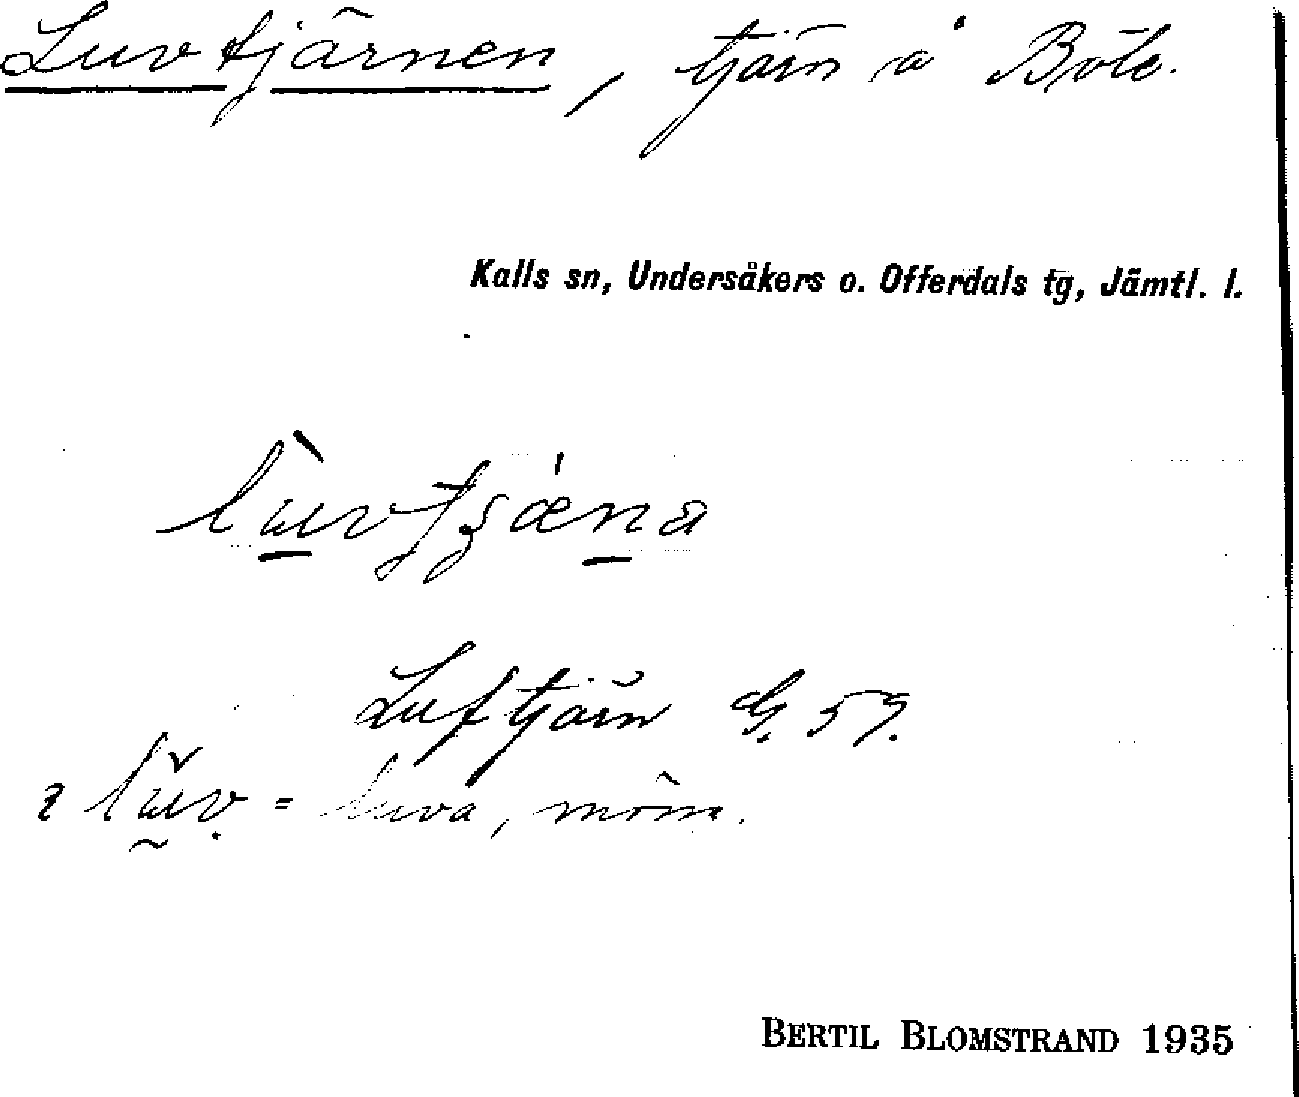 Luvtjärnen, tjärn å Böle.
Kalls sn, Undersåkers o. Offerdals tg, Jämtl. l.
Luftjärn G. 59.
= luva, möss.
BERTIL BLOMSTRAND 1935